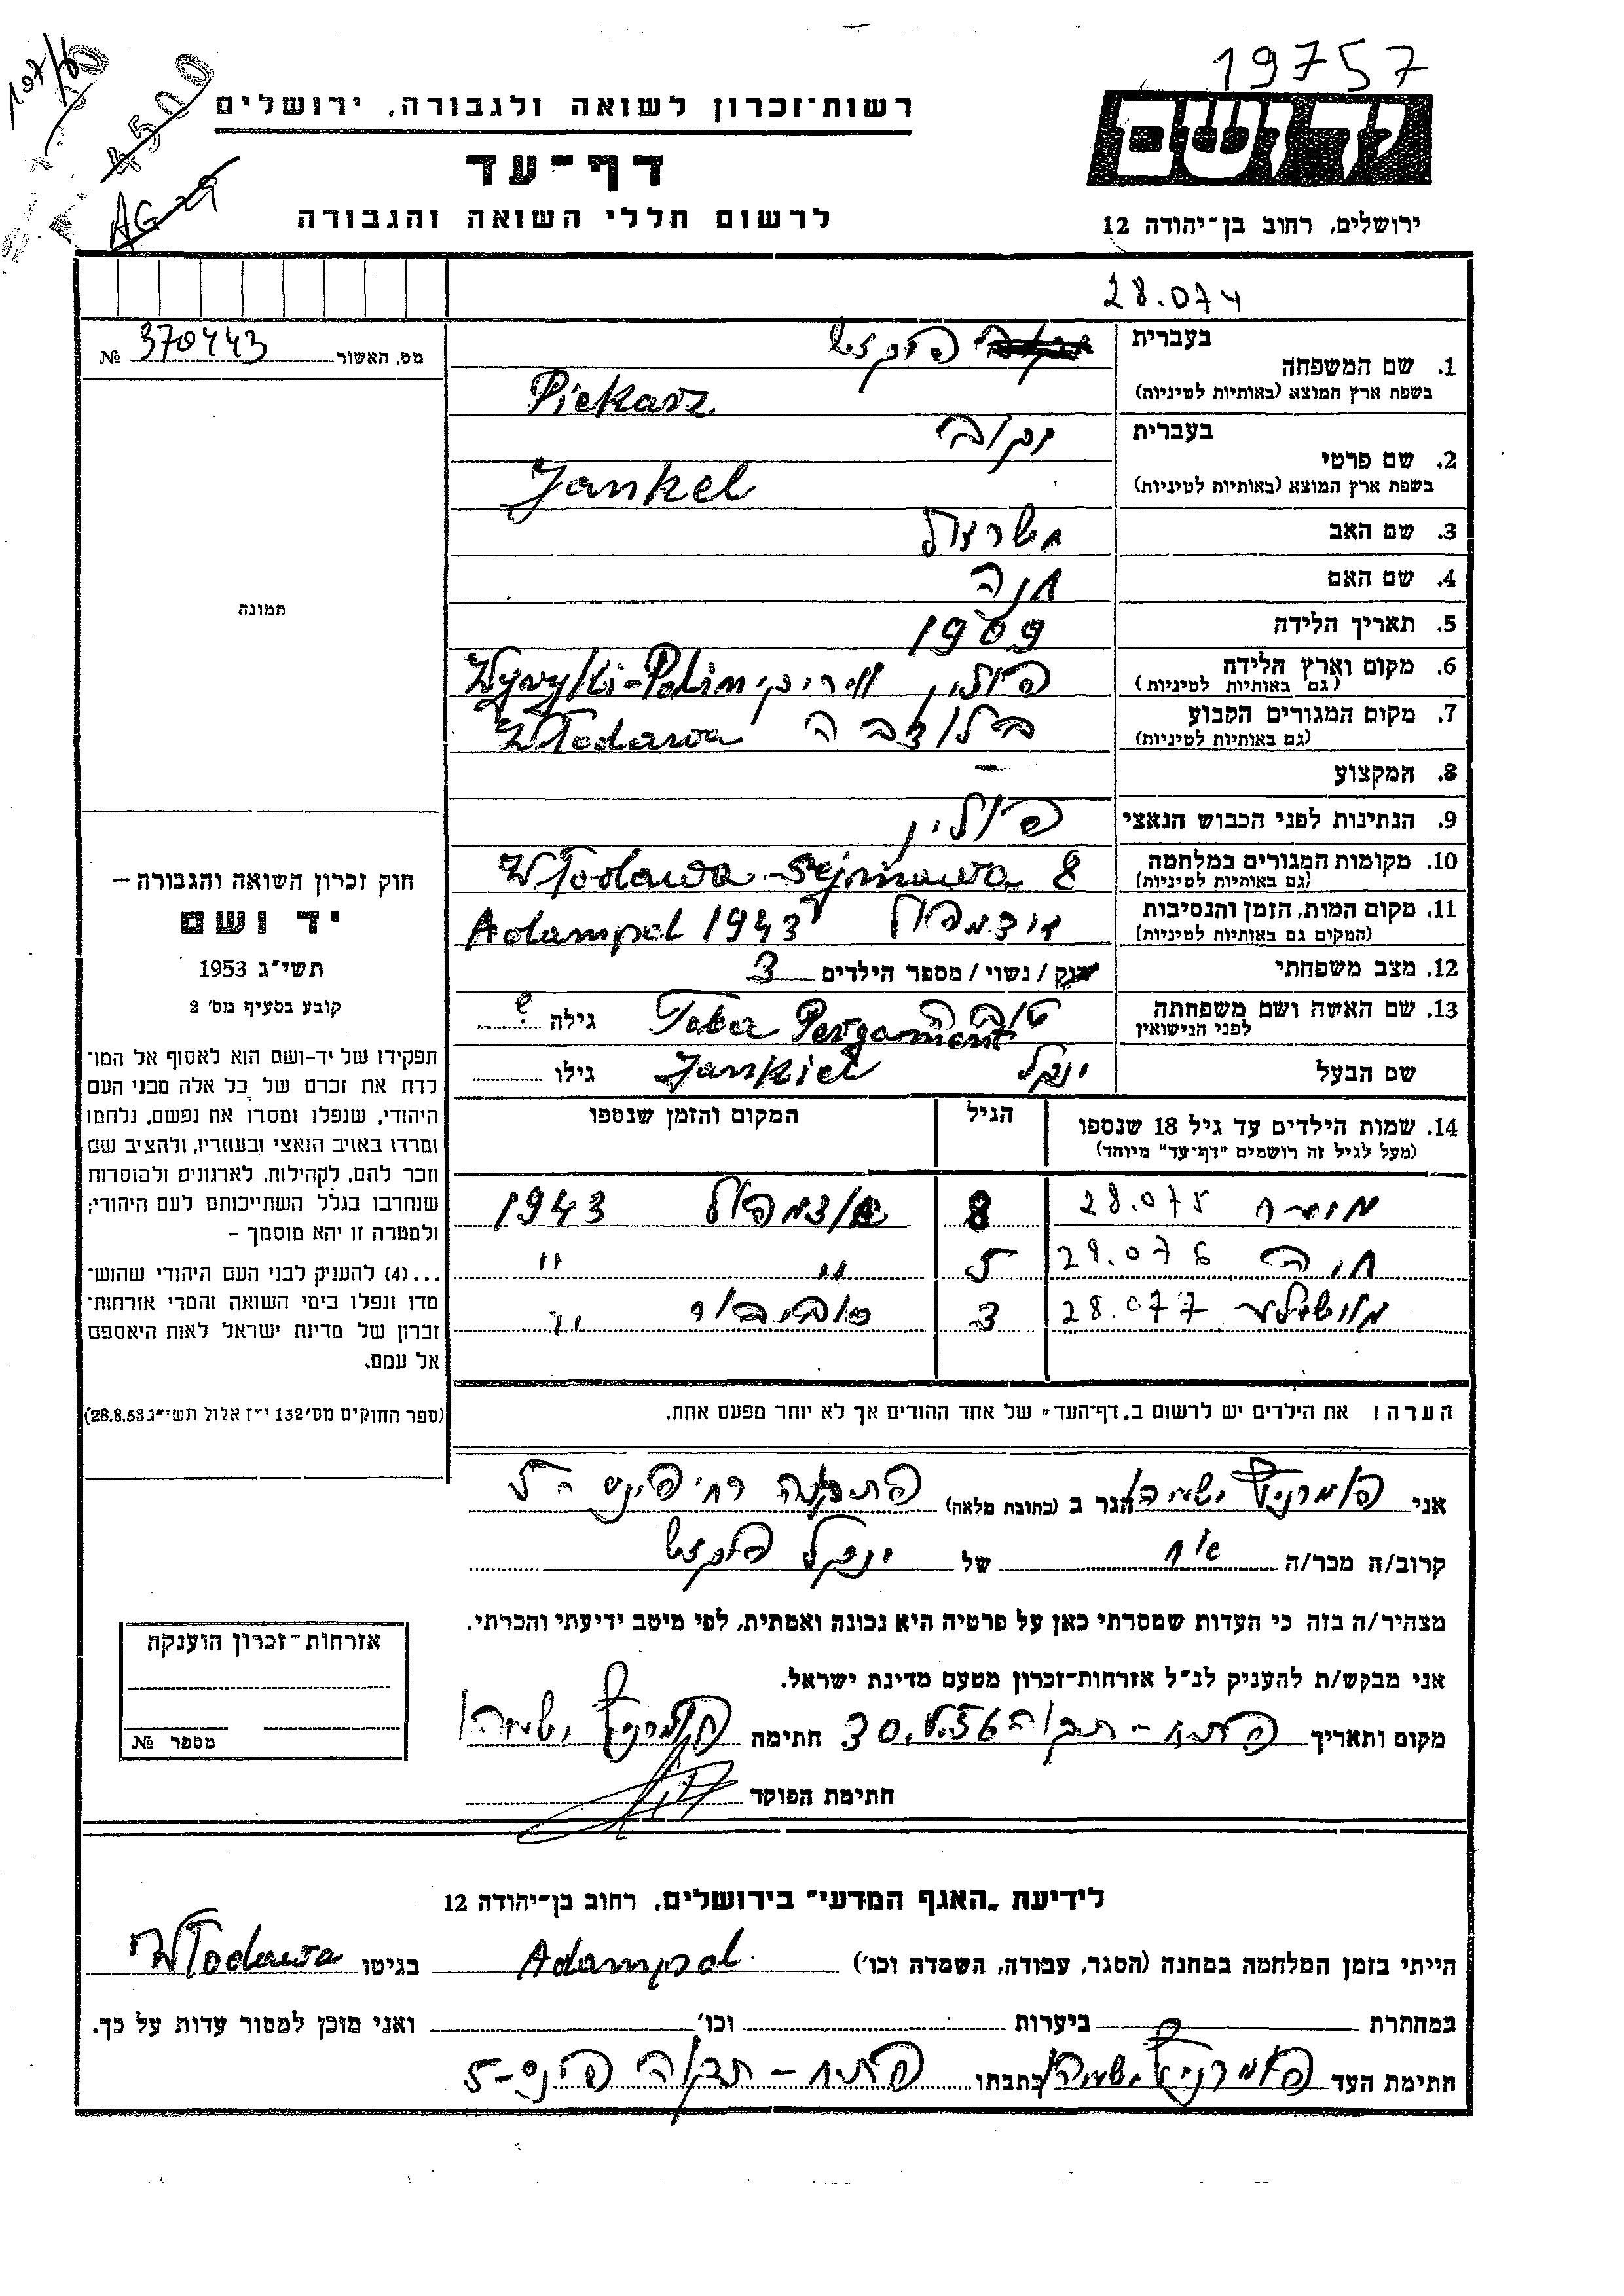 19757
רשות־זכרון לשואה ולגבורה, ירושלים
ידושם
דף־עד
לרשום חללי השואה והגבורה
ירושלים, רחוב בן־יהודה 12
4500
AG 29
28.074
מס. האשור 370443 №
1. שם המשפחה בעברית פיקאז'
בשפת ארץ המוצא (באותיות לטיניות) Piekarz
2. שם פרטי בעברית יקוב
בשפת ארץ המוצא (באותיות לטיניות) Jankel
3. שם האב
4. שם האם חנה
5. תאריך הלידה 1909
6. מקום וארץ הלידה פולין ווריקי Wyryki-Polin
(גם באותיות לטיניות)
7. מקום המגורים הקבוע Włodawa
(גם באותיות לטיניות)
8. המקצוע –
9. הנתינות לפני הכבוש הנאצי פולין
10. מקומות המגורים במלחמה Włodawa Sejmowa 8
(גם באותיות לטיניות)
11. מקום המות, הזמן והנסיבות אדמפול Adampol 1943
(המקום גם באותיות לטיניות)
12. מצב משפחתי רוק / נשוי / מספר הילדים 3
13. שם האשה ושם משפחתה לפני הנישואין טובה Toba Pergament גילה ?
שם הבעל ינקל Jankiel גילו
14. שמות הילדים עד גיל 18 שנספו הגיל המקום והזמן שנספו
(מעל לגיל זה רושמים "דף־עד" מיוחד)
28.075 8 אדמפול 1943
חיה 28.076 5 " "
28.077 3 סוביבור "
הערה: את הילדים יש לרשום ב„דף־העד" של אחד ההורים אך לא יותר מפעם אחת.
תמונה
חוק זכרון השואה והגבורה –
יד ושם
תשי"ג 1953
קובע בסעיף מס' 2
תפקידו של יד-ושם הוא לאסוף אל המו־
לדת את זכרם של כל אלה מבני העם
היהודי, שנפלו ומסרו את נפשם, נלחמו
ומרדו באויב הנאצי ובעוזריו, ולהציב שם
וזכר להם, לקהילות, לארגונים ולמוסדות
שנחרבו בגלל השתייכותם לעם היהודי;
ולמטרה זו יהא מוסמך –
...(4) להעניק לבני העם היהודי שהוש־
מדו ונפלו בימי השואה והמרי אזרחות־
זכרון של מדינת ישראל לאות היאספם
אל עמם.
(ספר החוקים מס' 132 י"ז אלול תשי"ג 28.8.53)
אני הגר ב (כתובת מלאה) פתח תקוה רח' פינס 5
קרוב/ה מכר/ה אח של ינקל פיקאז'
מצהיר/ה בזה כי העדות שמסרתי כאן על פרטיה היא נכונה ואמתית, לפי מיטב ידיעתי והכרתי.
אני מבקש/ת להעניק לנ"ל אזרחות־זכרון מטעם מדינת ישראל.
מקום ותאריך פתח - תקוה חתימה
חתימת הפוקד
אזרחות־זכרון הוענקה
מספר №
לידיעת „האגף המדעי" בירושלים, רחוב בן־יהודה 12
הייתי בזמן המלחמה במחנה (הסגר, עבודה, השמדה וכו') Adampol בגיטו Włodawa
במחתרת ביערות וכו' ואני מוכן למסור עדות על כך.
חתימת העד כתבתו פתח - תקוה פינס-5